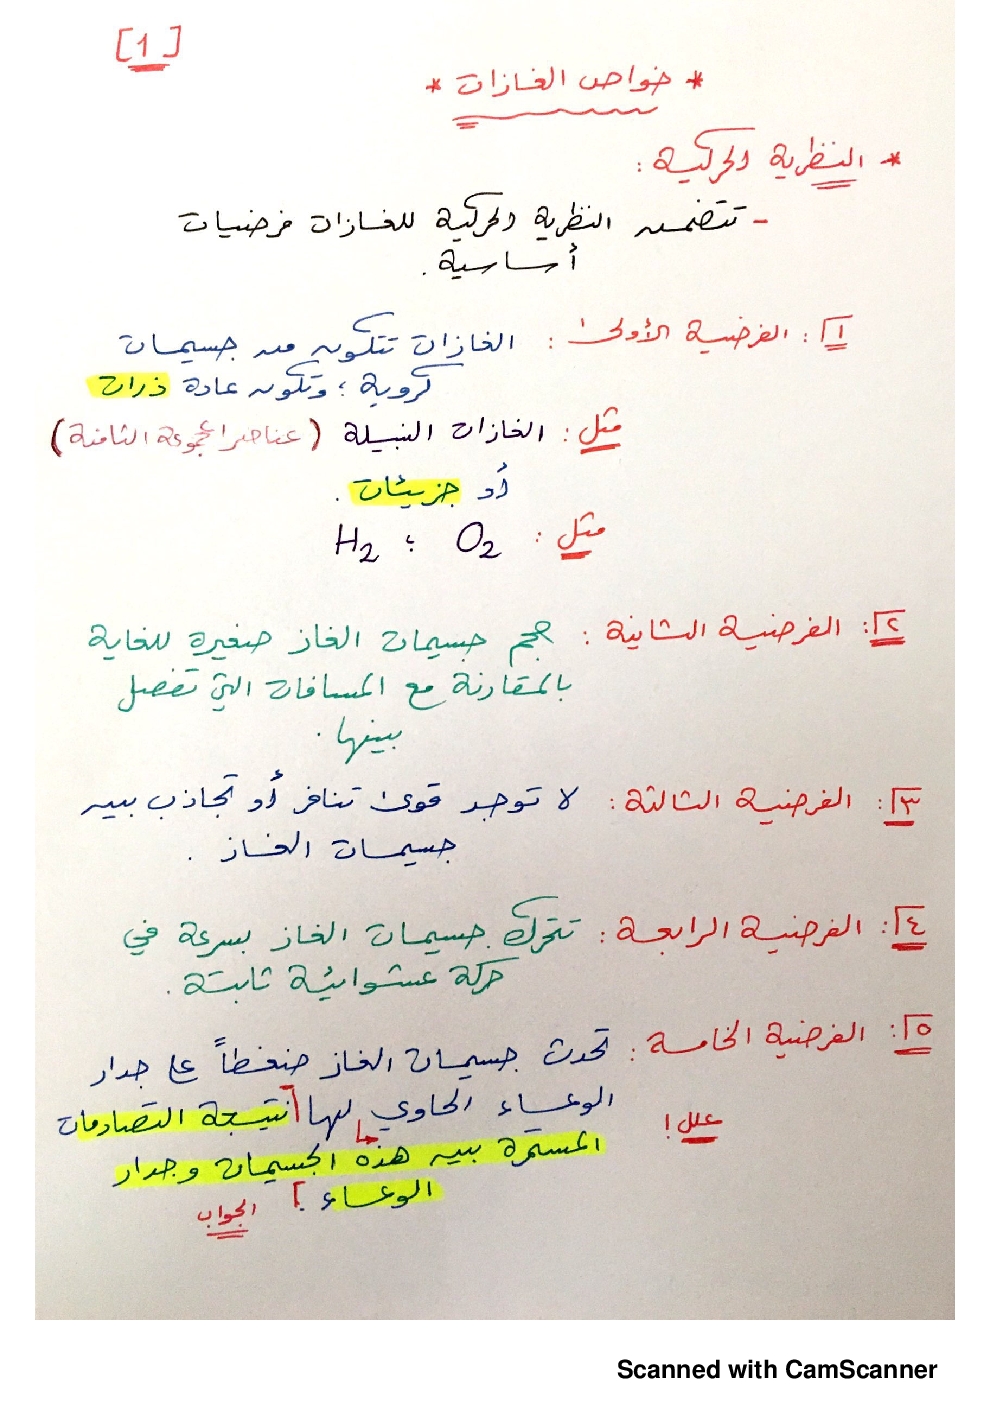 [1]
* خواص الغازات *
* النظرية الحركية :
- تتضمن النظرية الحركية للغازات فرضيات
أساسية .
١: الفرضية الأولى : الغازات تتكون من جسيمات
كروية ؛ وتكون عادة ذرات
مثل : الغازات النبيلة (عناصر المجموعة الثامنة)
أو جزيئات .
مثل : O2 ؛ H2
٢: الفرضية الثانية : حجم جسيمات الغاز صغيرة للغاية
بالمقارنة مع المسافات التي تفصل
بينها .
٣: الفرضية الثالثة : لا توجد قوى تنافر أو تجاذب بين
جسيمات الغاز .
٤: الفرضية الرابعة : تتحرك جسيمات الغاز بسرعة في
حركة عشوائية ثابتة .
٥: الفرضية الخامسة : تحدث جسيمات الغاز ضغطاً على جدار
الوعاء الحاوي لها [نتيجة التصادمات
علل !
المستمرة بين هذه الجسيمات وجدار
الوعاء .]
الجواب
Scanned with CamScanner